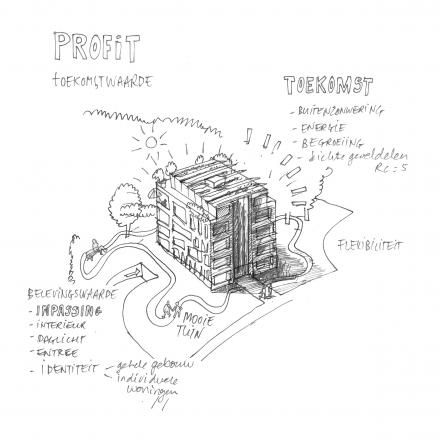 PROFiT
tOEKOMStWAARDE
TOEKOMST
- BUITENZONWERING
- ENERGIE
- BEGROEIING
- dichte geveldelen
RC = 5
FLEXIBILITEIT
BELEVINGSWAARDE
- INPASSING
- INTERIEUR
- DAGLICHT
- ENTREE
- IDENTITEIT - gehele gebouw
- individuele
woningen
MOOIE
TUIN